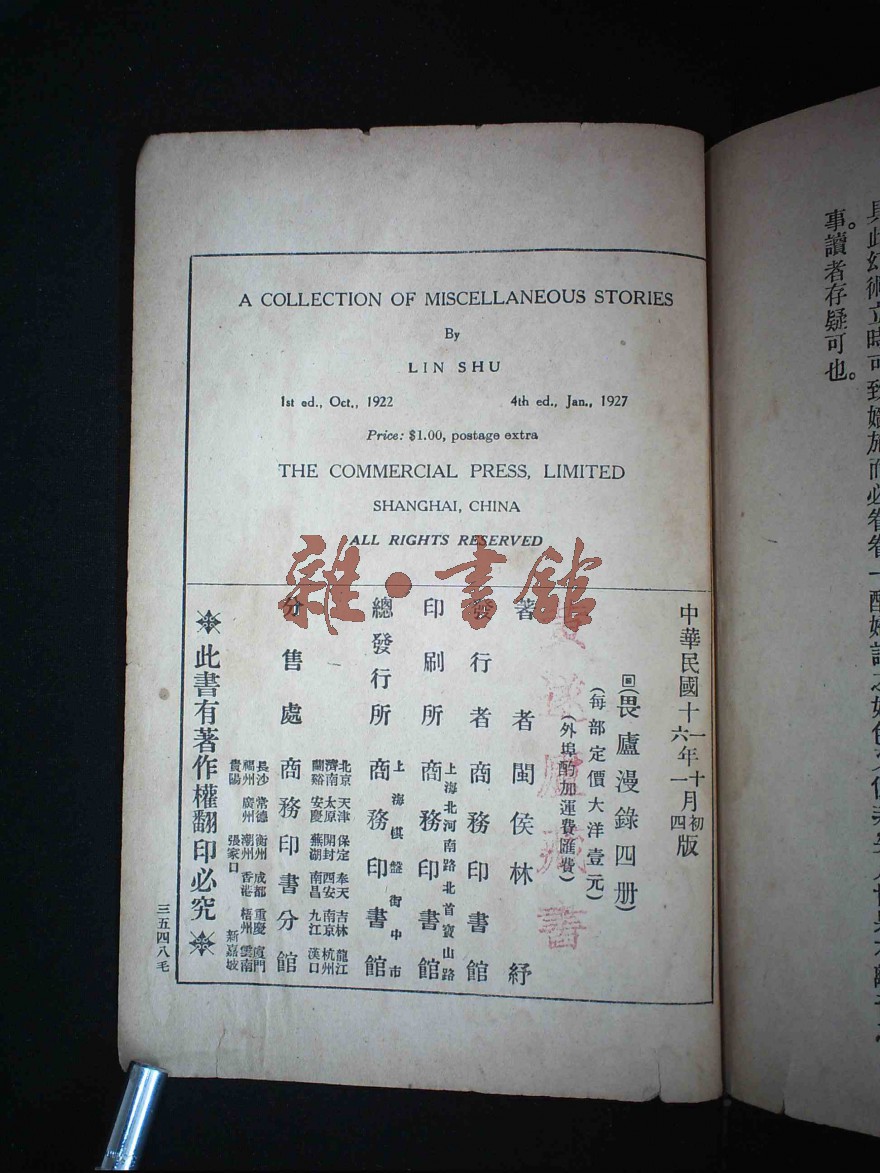 A COLLECTION OF MISCELLANEOUS STORIES
By
LIN SHU
1st ed., Oct., 1922 4th ed., Jan., 1927
Price: $1.00, postage extra
THE COMMERCIAL PRESS, LIMITED
SHANGHAI, CHINA
ALL RIGHTS RESERVED
雜·書館
中華民國十一年十月初版
六 一 四
回(畏廬漫錄四册)
(每部定價大洋壹元)
(外埠酌加運費匯費)
著者 閩侯林紓
發行者 商務印書館
印刷所 上海北河南路北首寶山路 商務印書館
總發行所 上海棋盤街中市 商務印書館
分售處 商務印書分館
北京 天津 保定 奉天 吉林 龍江
濟南 太原 開封 西安 南京 杭州
蘭谿 安慶 蕪湖 南昌 九江 漢口
長沙 常德 衡州 成都 重慶 廈門
福州 廣州 潮州 香港 梧州 雲南
貴陽 張家口 新嘉坡
此書有著作權翻印必究
三五四八毛
藏書
事。讀者存疑可也。